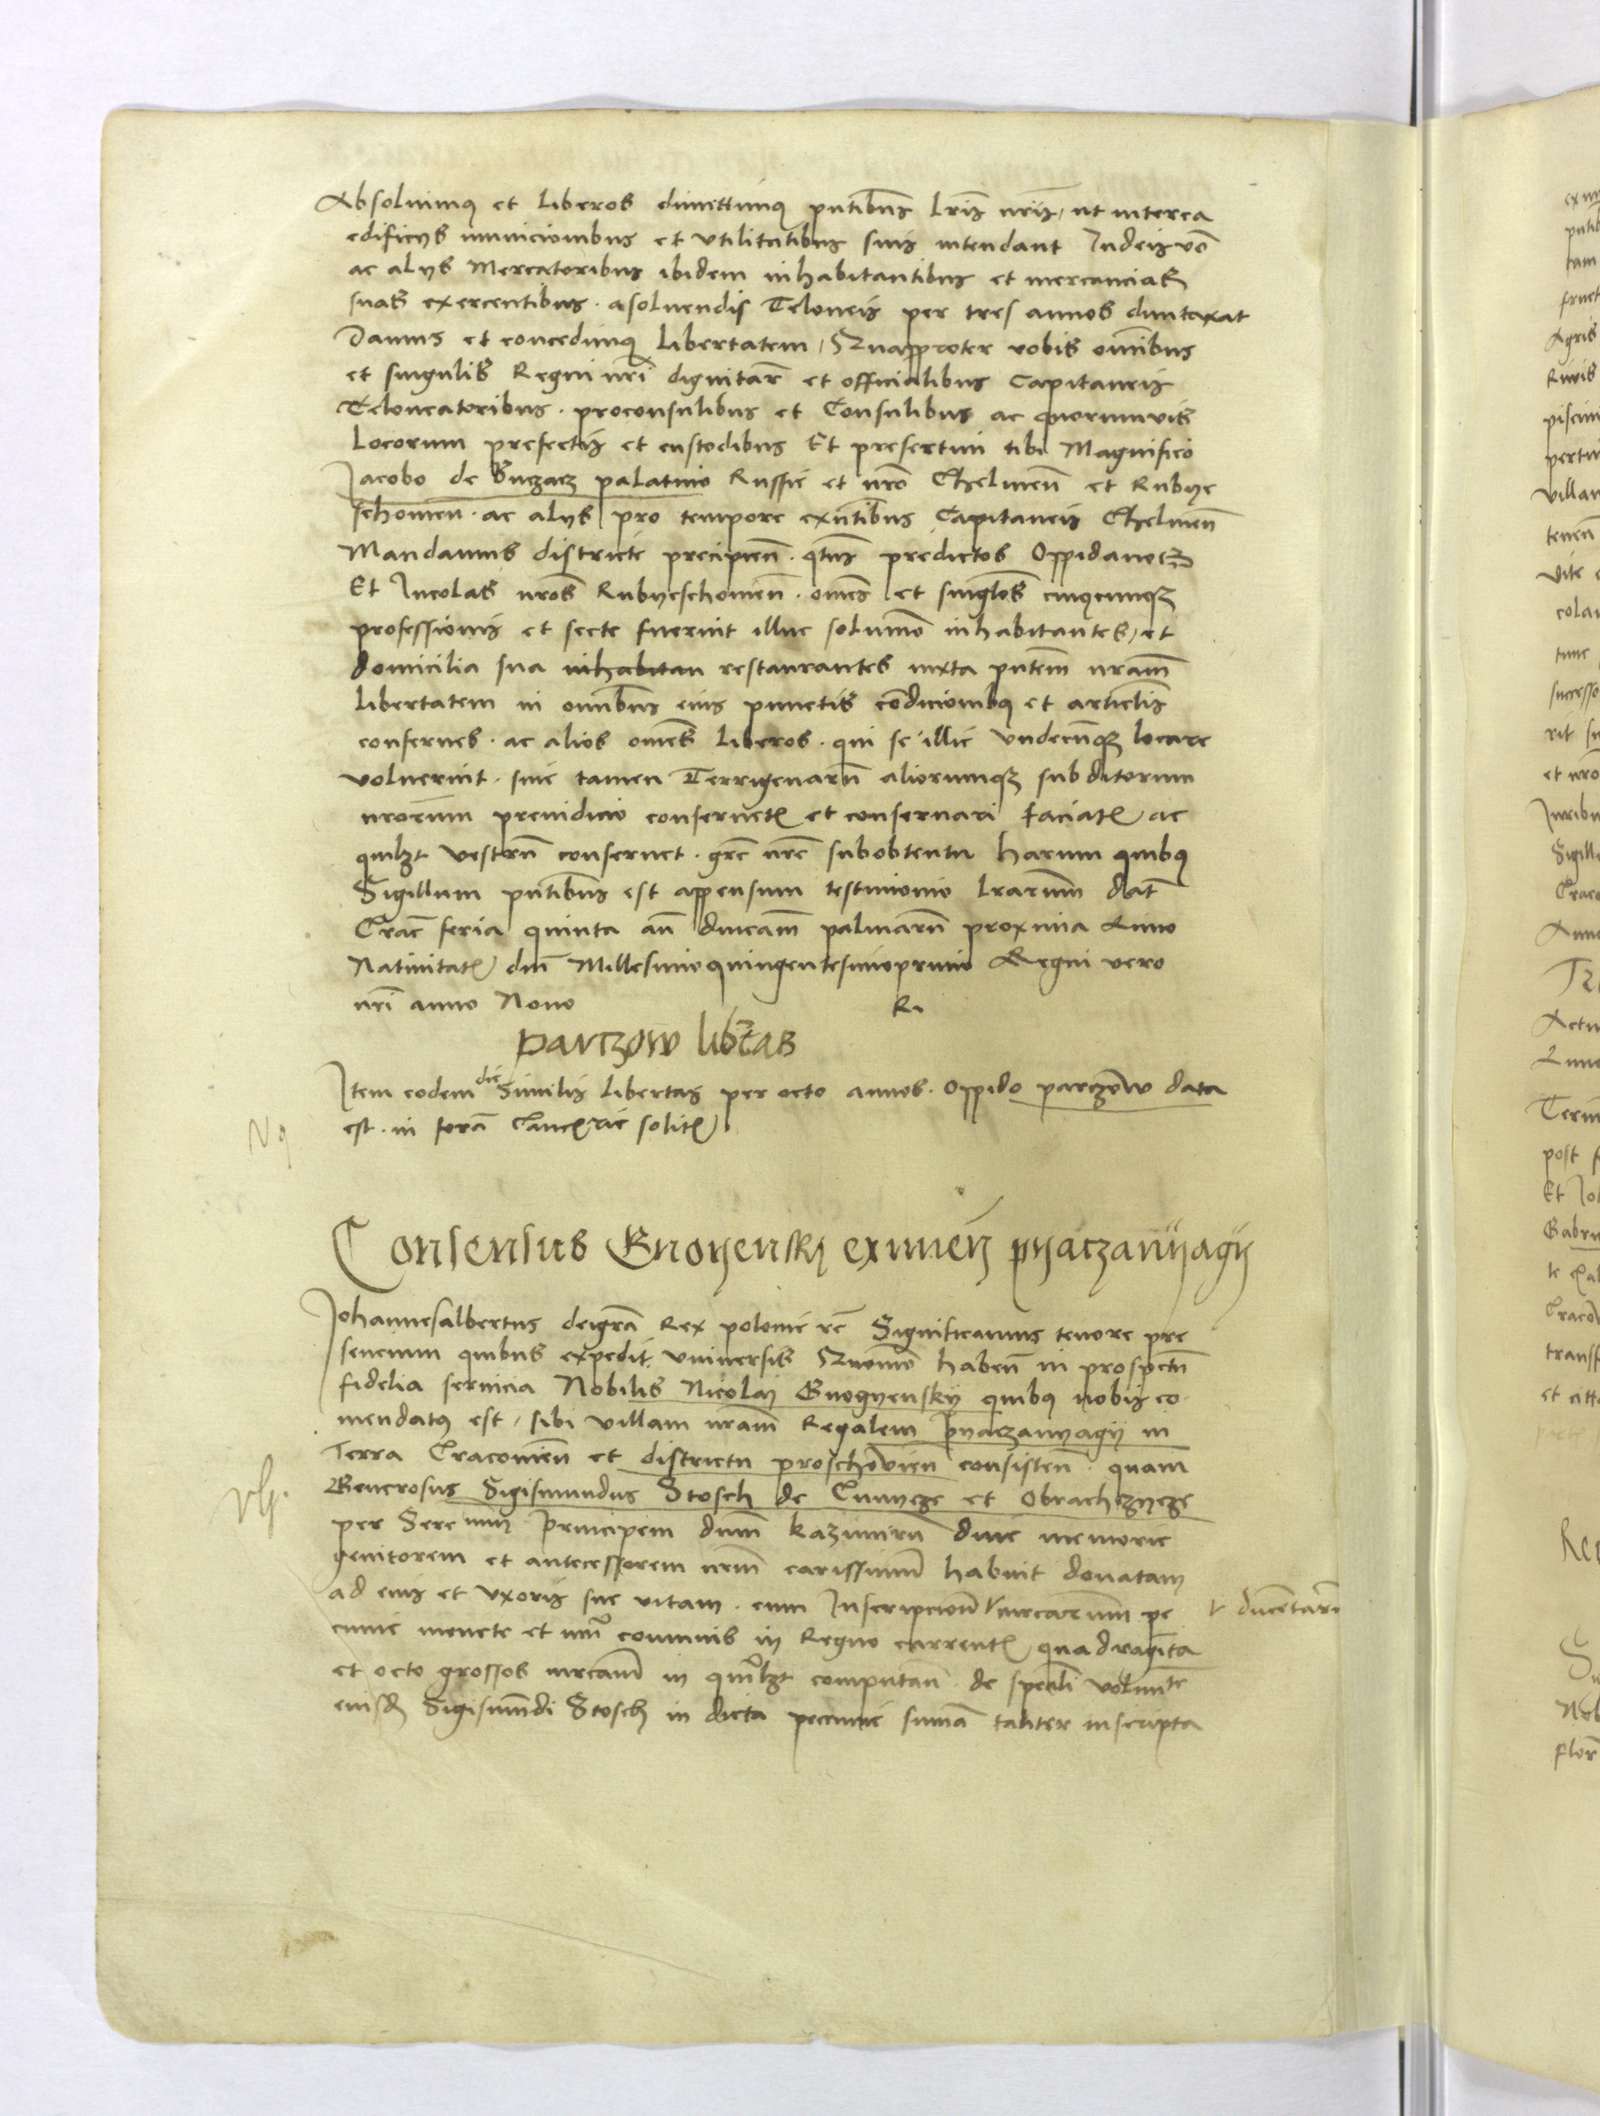 Absolvimus et Liberos dimittimus pntibus lris nris, ut interea
edificys municionibus et utilitatibus suis intendant Iudeis vo
ac alys Mercatoribus ibidem inhabitantibus et mercancias
suas exercentibus. asolvendis Teloneis per tres annos duntaxat
Damus et concedimus Libertatem, Quapropter vobis omnibus
et singulis Regni nri dignitar et officialibus Capitaneis
Teloneatoribus. proconsulibus et Consulibus ac quorumvis
Locorum prefectis et custodibus Et presertim tibi Magnifico
Jacobo de Buczacz palatino Russie et nro Chelmen et Rubye
schowien. ac alys pro tempore exntibus Capitaneis Chelmen
Mandamus districte precipien. qtus predictos Oppidanos
Et Incolas nros Rubyeschowien. omes et singlos cuiuscumqz
professionis et secte fuerint illuc solummo inhabitantes, et
domicilia sua inhabitan restaurantes iuxta pntem nram
libertatem in omnibus eius punctis condicionibus et articlis
confernes. ac alios omes Liberos. qui se illic undecunqz locare
voluerint. sine tamen Terrigenarum aliorumqz subditorum
nrorum preiudicio conservetis et conservari faciatis ac
quilzt vestrum conservet. gre nre subobtentu harum quibus
Sigillum pntibus est appensum testimonio lrarum dat
Crac feria quinta an dnicam palmarum proxima Anno
Nativitatis dni Millesimoquingentesimoprimo Regni vero
nri anno Nono
R.
Parczow libtas
Item eodem die Similis Libertas per octo annos. Oppido parczow data
est. in forma Cancrie solitis
Consensus Gnoyensky eximen pyaczanyagy
Johannesalbertus deigra Rex polonie rc Significamus tenore pre
sencium quibus expedit. universis Quomo haben in prospectu
fidelia servicia Nobilis Nicolaj Gnogyensky quibus nobis co
mendatus est, sibi villam nram Regalem pyaczanyagy in
Terra Cracovien et districtu proschovien consisten. quam
Generosus Sigismundus Stosch de Cunycze et Obrachczycze
per Sere num Principem dnum Kazimirum dive memorie
genitorem et antecessorem nrm carissimum habuit donatam
ad eius et uxoris sue vitam. cum Inscripcione mrcarum pe
ducentarum
cunie monete et numi communis in Regno currentis quadraginta
et octo grossos mrcam in qualzt computan. de speciali voluntate
eiusd Sigismundi Stosch in dicta peccunie summa taliter inscripta